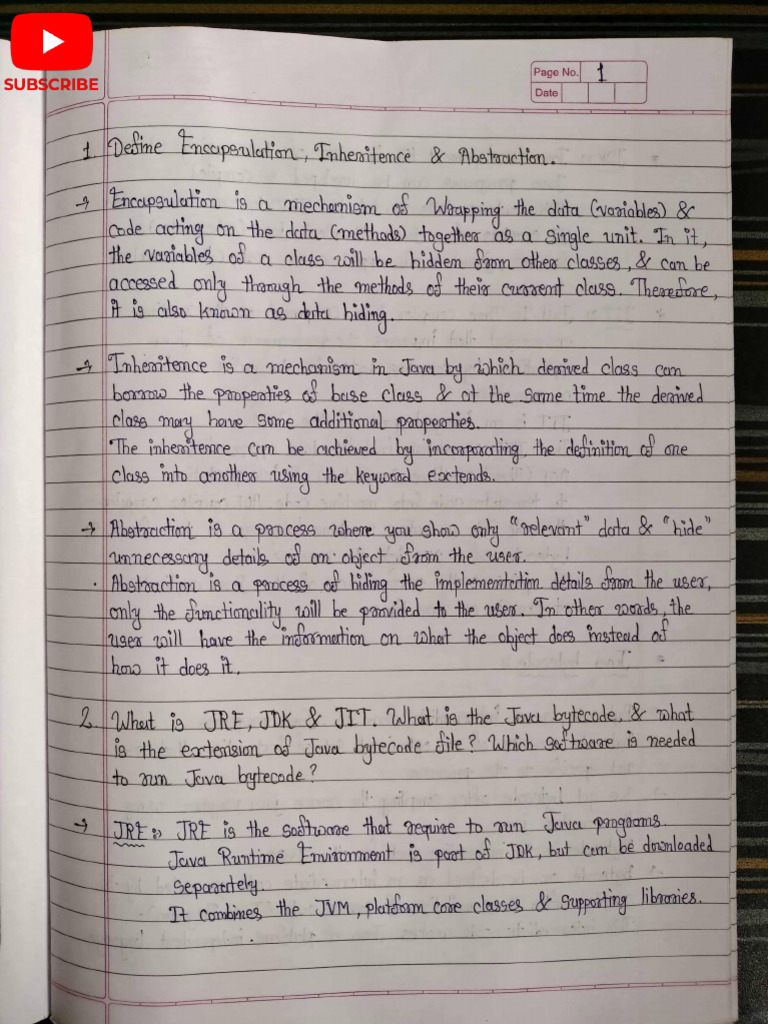 SUBSCRIBE
Page No. 1
Date
1. Define Encapsulation, Inheritence & Abstraction.
→ Encapsulation is a mechanism of Wrapping the data (variables) &
code acting on the data (methods) together as a single unit. In it,
the variables of a class will be hidden from other classes, & can be
accessed only through the methods of their current class. Therefore,
it is also known as data hiding.
→ Inheritence is a mechanism in Java by which derived class can
borrow the properties of base class & at the same time the derived
class may have some additional properties.
The inheritence can be achieved by incorporating the definition of one
class into another using the keyword extends.
→ Abstraction is a process where you show only "relevant" data & "hide"
unnecessary details of an object from the user.
. Abstraction is a process of hiding the implementation details from the user,
only the functionality will be provided to the user. In other words, the
user will have the information on what the object does instead of
how it does it.
2. What is JRE, JDK & JIT. What is the Java bytecode, & what
is the extension of Java bytecode file? Which software is needed
to run Java bytecode?
→ JRE :> JRE is the software that require to run Java programs.
Java Runtime Environment is part of JDK, but can be downloaded
separately.
It combines the JVM, platform core classes & supporting libraries.